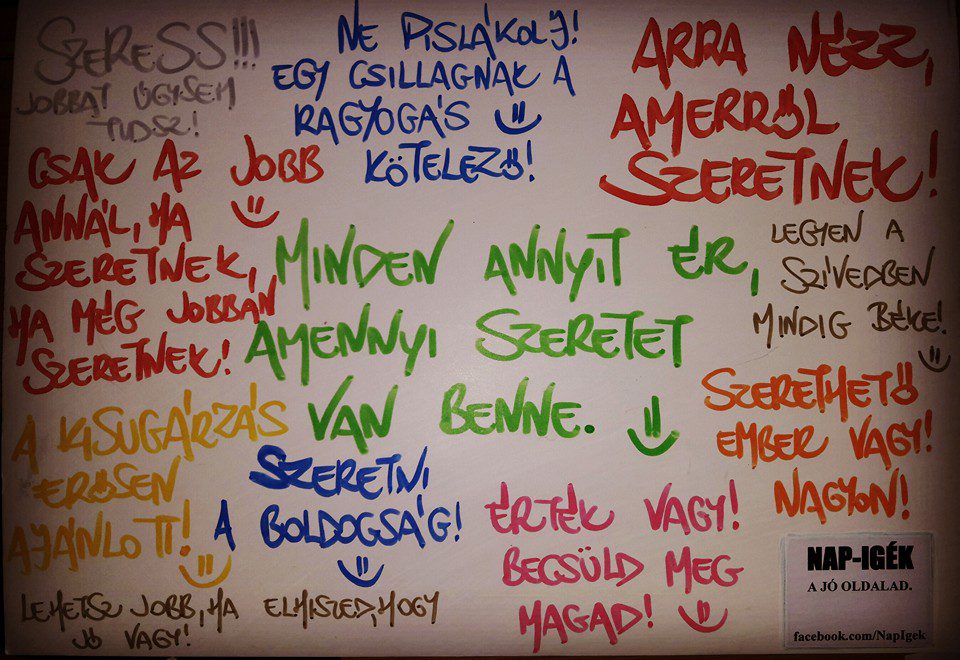 SZERESS!!!
JOBBAT ÚGYSEM
TUDSZ!
NE PISLÁKOLJ!
EGY CSILLAGNAK A
RAGYOGÁS
KÖTELEZŐ!
ARRA NÉZZ,
AMERRŐL
SZERETNEK!
CSAK AZ JOBB
ANNÁL, HA
SZERETNEK,
HA MÉG JOBBAN
SZERETNEK!
MINDEN ANNYIT ÉR,
AMENNYI SZERETET
VAN BENNE.
LEGYEN A
SZÍVEDBEN
MINDIG BÉKE!
A KISUGÁRZÁS
ERŐSEN
AJÁNLOTT!
SZERETNI
A BOLDOGSÁG!
SZERETHETŐ
EMBER VAGY!
NAGYON!
ÉRTÉK VAGY!
BECSÜLD MEG
MAGAD!
LEHETSZ JOBB, HA ELHISZED, HOGY
JÓ VAGY!
NAP-IGÉK
A JÓ OLDALAD.
facebook.com/NapIgek